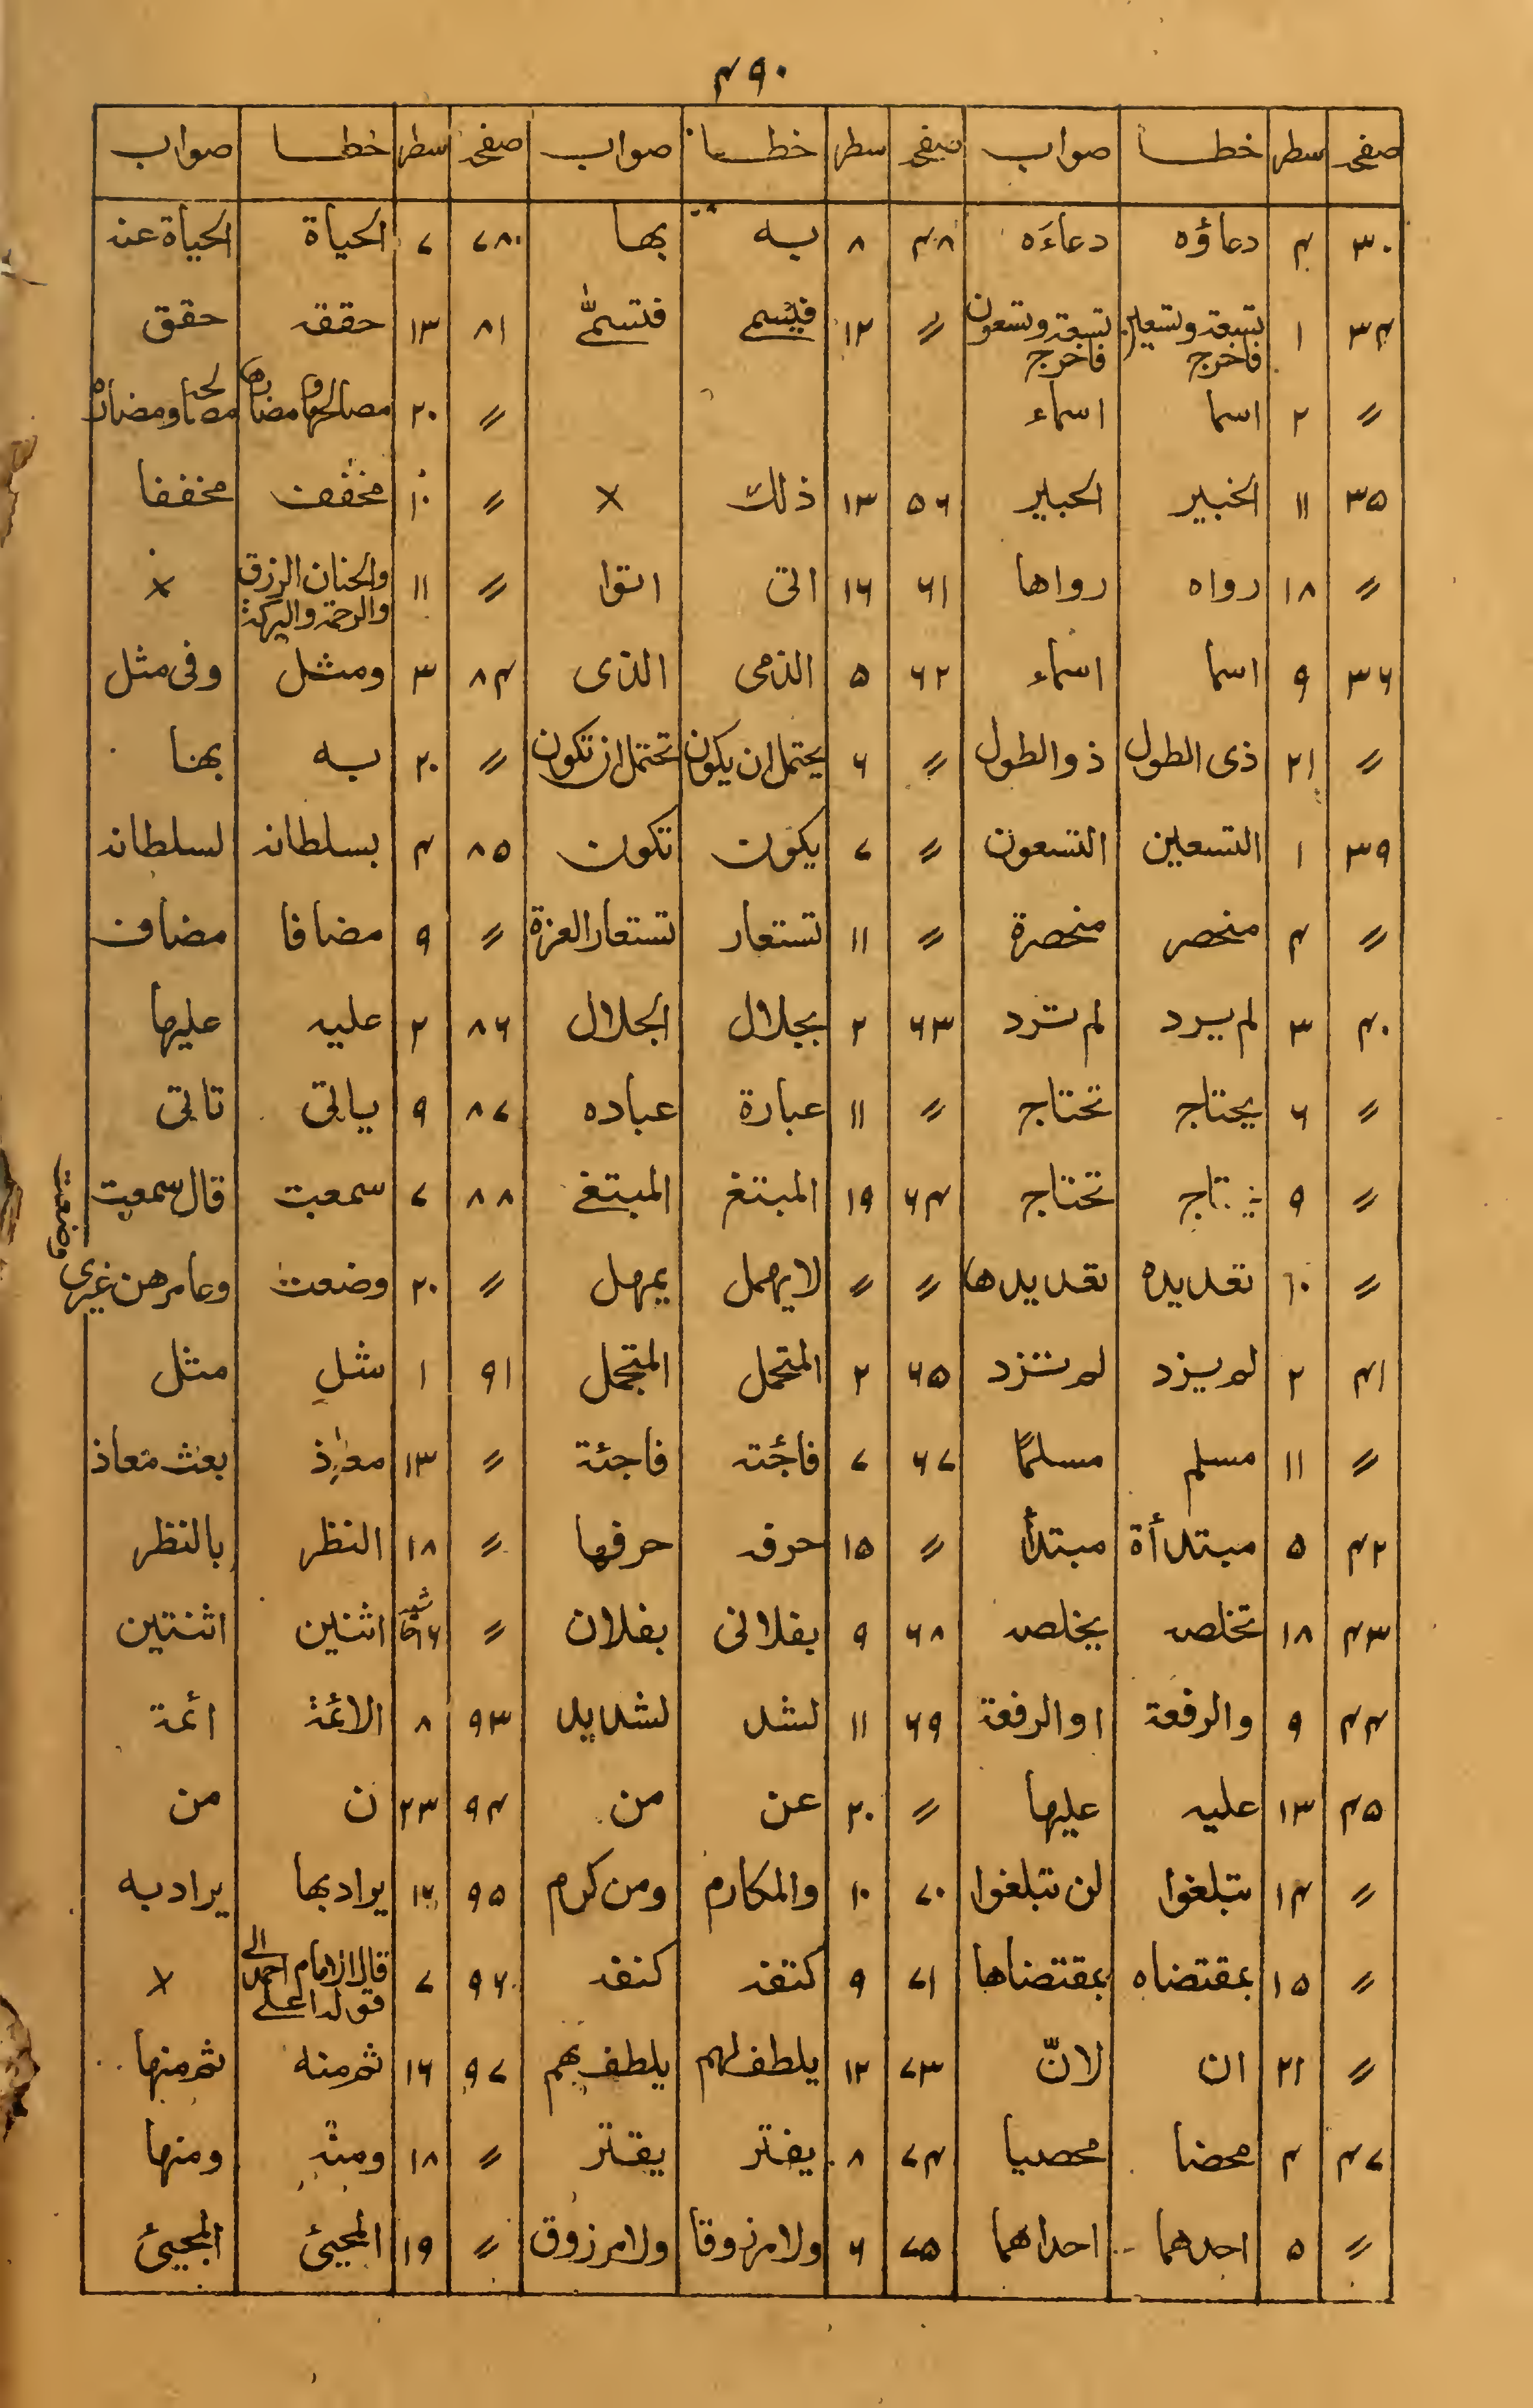 ۴۹۰
صفحہ سطر خطا صواب صفحہ سطر خطا صواب صفحہ سطر خطا صواب
۳۰ ۴ دعاؤه دعاءَه ۴۸ ۸ به بها ۷۸ ۷ الحياة الحياة عنه
۳۴ ۱ تسعة وتسعين فاخرج تسعة وتسعون فاخرج 〃 ۱۲ فيسمى فتسمّى ۸۱ ۱۳ حققه حقق
〃 ۲ اسما اسماء 〃 ۲۰ مصالحها ومضارها مصالحه ومضاره
۳۵ ۱۱ الخبير الحبير ۵۶ ۱۳ ذلك × 〃 ۱۰ مخفف مخففا
〃 ۱۸ رواه رواها ۶۱ ۱۶ اتى اتوا 〃 ۱۱ والحنان الرزق والرحمة والبركة ×
۳۶ ۹ اسما اسماء ۶۲ ۵ الذمى الذى ۸۴ ۳ ومثل وفى مثل
〃 ۲۱ ذى الطول ذو الطول 〃 ۶ يحتمل ان يكون تحتمل ان تكون 〃 ۲۰ به بهنا
۳۹ ۱ التسعين التسعون 〃 ۷ يكون تكون ۸۵ ۴ بسلطانه لسلطانه
〃 ۴ منحصر منحصرة 〃 ۱۱ تستعار تستعار العزة 〃 ۹ مضافا مضاف
۴۰ ۳ لم يرد لم ترد ۶۳ ۲ بجلال الجلال ۸۶ ۲ عليه عليها
〃 ۶ يحتاج تحتاج 〃 ۱۱ عبارة عباده ۸۷ ۹ ياتى تاتى
〃 ۹ تحتاج ۶۴ ۱۹ المبتغ المبتغى ۸۸ ۷ سمعت قال سمعت
〃 ۱۰ تعديده تعديدها 〃 〃 لا يهمل يمهل 〃 ۲۰ وضعت وعامرهن غيرى وضعت
۴۱ ۲ لم يزد لم تزد ۶۵ ۲ المتحمل المتجمل ۹۱ ۱ شل مثل
〃 ۱۱ مسلم مسلمًا ۶۷ ۷ فاجٔته فاجئة 〃 ۱۳ معاذ بعث معاذ
۴۲ ۵ مبتدأة مبتدأ 〃 ۱۵ حرفه حرفها 〃 ۱۸ النظر بالنظر
۴۳ ۱۸ تخلصه يخلصه ۶۸ ۹ بفلانى بفلان 〃 اثنين اثنتين
۴۴ ۹ والرفعة او الرفعة ۶۹ ۱۱ لشد لشديد ۹۳ ۸ الائمة ائمة
۴۵ ۱۳ عليه عليها 〃 ۲۰ عن من ۹۴ ۲۳ ن من
〃 ۱۴ تبلغوا لن تبلغوا ۷۰ ۱۰ والمكارم ومن كرم ۹۵ ۱۲ يراد بها يراد به
〃 ۱۵ بمقتضاه بمقتضاها ۷۱ ۹ كنفه كنفه ۹۶ ۷ قال الامام احمد الى قوله اعلى ×
〃 ۲۱ ان لانّ ۷۳ ۱۲ يلطف لهم يلطف بهم ۹۷ ۱۶ ثم منه ثم منها
۴۷ ۴ محضا محصيا ۷۴ ۸ يفتر يقتر 〃 ۱۸ ومنه ومنها
〃 ۵ احدهما احداهما ۷۵ ۶ ولا مرزوقا ولا مرزوق 〃 ۱۹ المحيئ المجيئ